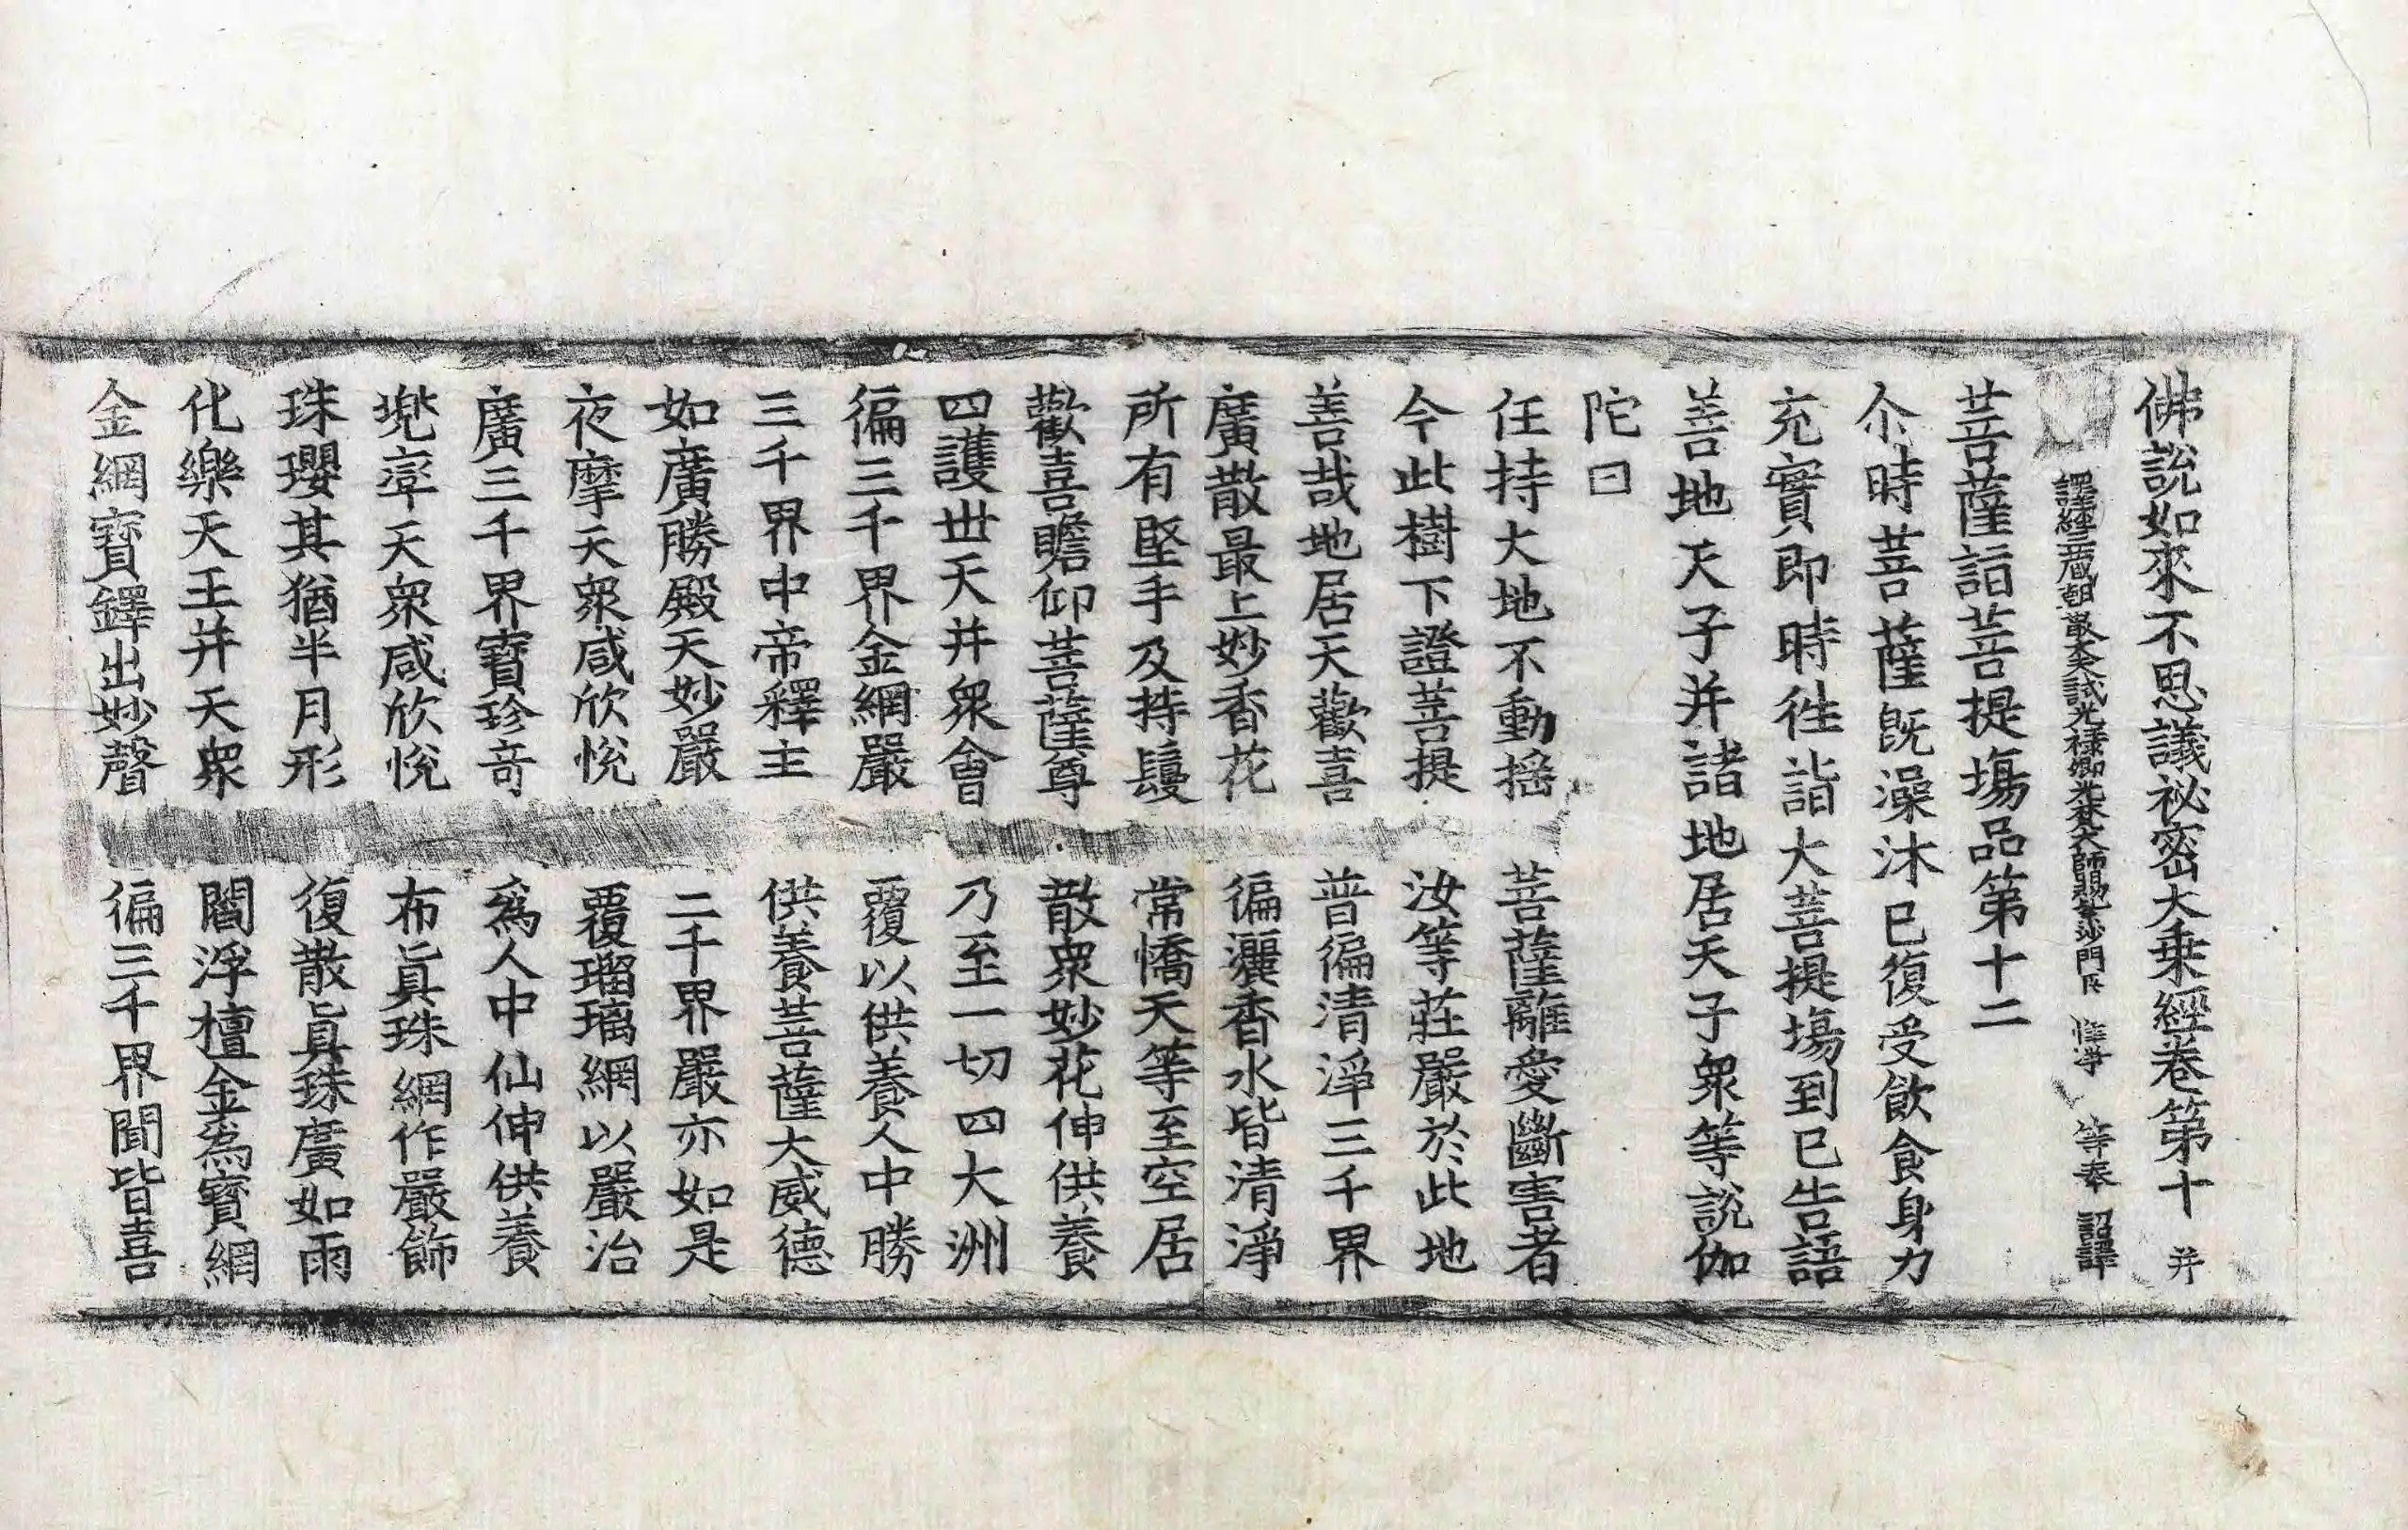 佛說如來不思議祕密大乘經卷第十 并
譯經三藏朝散大夫試光祿卿光梵大師賜紫沙門臣 惟淨 等奉 詔譯
菩薩詣菩提場品第十二
尒時菩薩旣澡沐已復受飲食身力
充實即時徃詣大菩提場到已告語
善地天子并諸地居天子衆等說伽
陀曰
任持大地不動搖 菩薩離愛斷害者
今此樹下證菩提 汝等莊嚴於此地
善哉地居天歡喜 普徧清淨三千界
廣散最上妙香花 徧灑香水皆清淨
所有堅手及持鬘 常憍天等至空居
歡喜瞻仰菩薩尊 散衆妙花伸供養
四護世天并衆會 乃至一切四大洲
徧三千界金網嚴 覆以供養人中勝
三千界中帝釋主 供養菩薩大威德
如廣勝殿天妙嚴 二千界嚴亦如是
夜摩天衆咸欣悅 覆瑠璃網以嚴治
廣三千界寶珍竒 爲人中仙伸供養
兠率天衆咸欣悅 布眞珠網作嚴飾
珠瓔其猶半月形 復散眞珠廣如雨
化樂天王并天衆 閻浮檀金爲寶網
金網寶鐸出妙聲 徧三千界聞皆喜